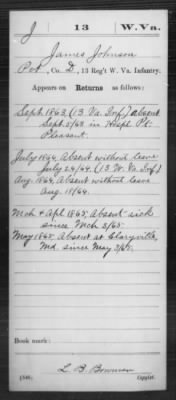 J 13 W.Va.
James Johnson
Pvt., Co. D, 13 Reg't W. Va. Infantry.
Appears on Returns as follows:
Sept. 1863, (13 Va. Inf.) absent
Sept. 3/63 in Hospl. Pt.
Pleasant.
July 1864, Absent without leave
July 24/64. (13 W. Va Inf.)
Aug. 1864, Absent without leave
Aug. 18/64.
Mch & Apl. 1865, Absent sick
since Mch 3/65.
May 1865, Absent at Claryville,
Md. since Mch 3/65.
Book mark:
L. B. Bowman
(546) Copyist.